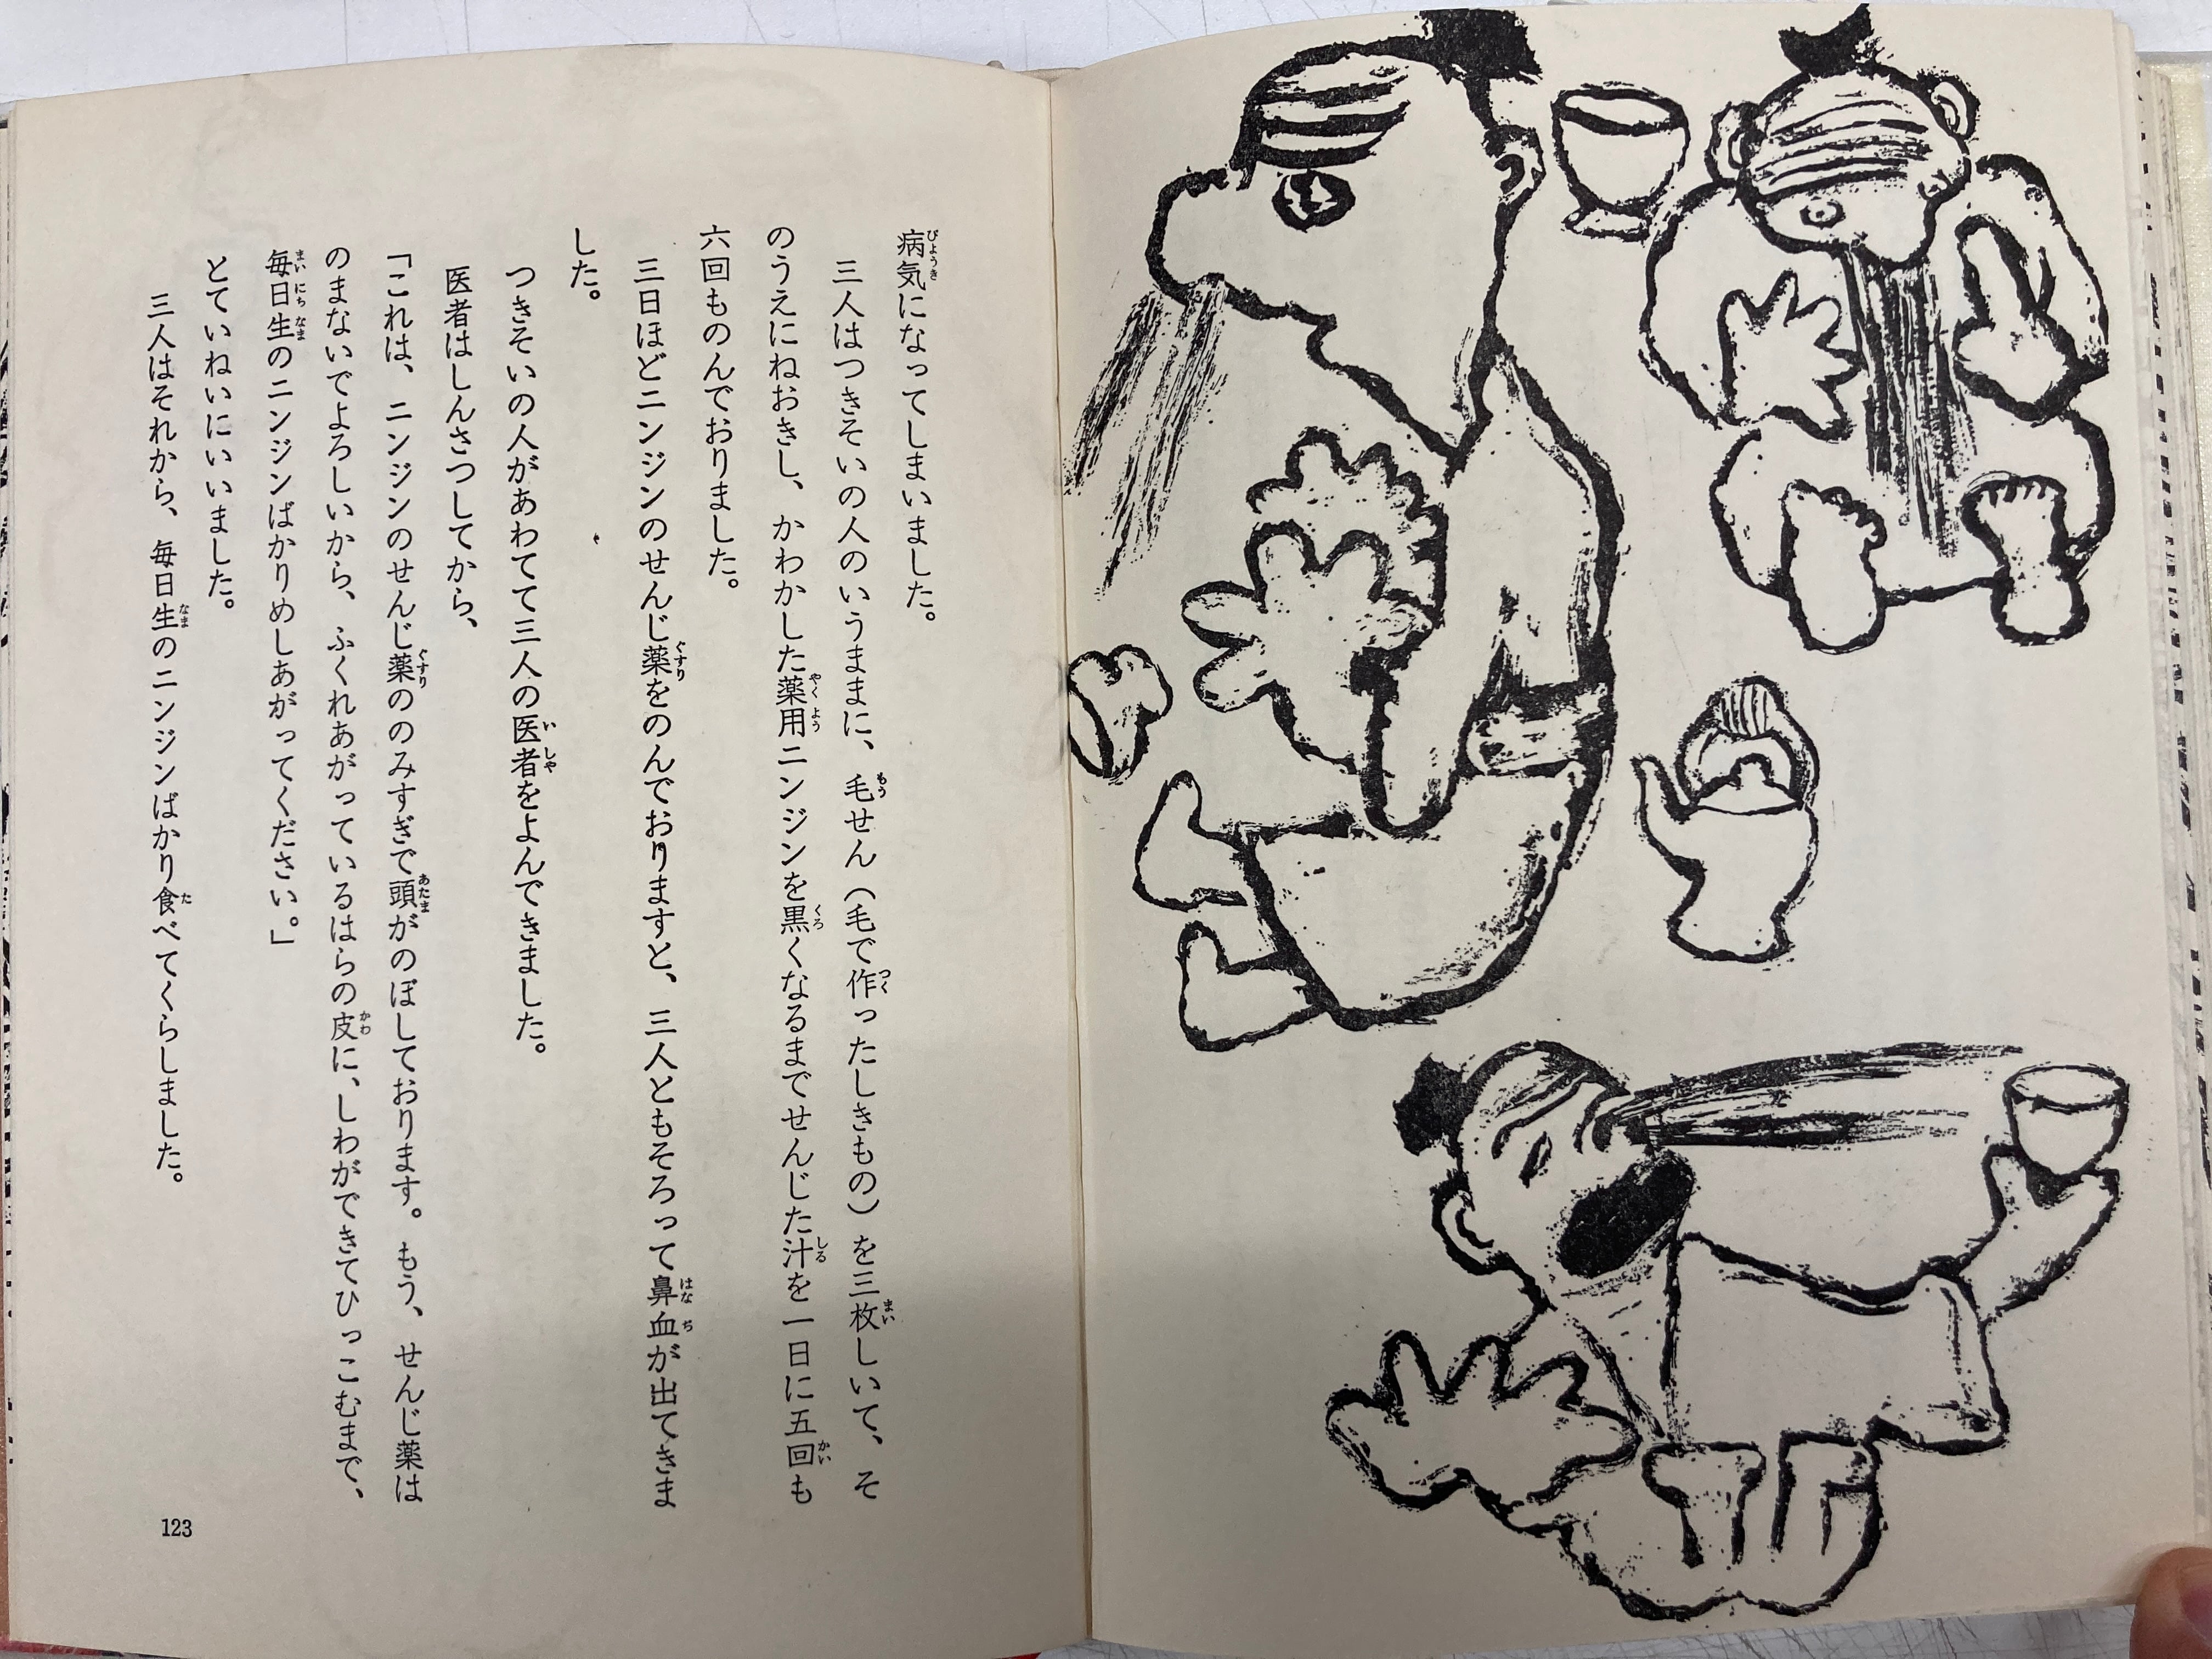 病気になってしまいました。
三人はつきそいの人のいうままに、毛せん（毛で作ったしきもの）を三枚しいて、そ
のうえにねおきし、かわかした薬用ニンジンを黒くなるまでせんじた汁を一日に五回も
六回ものんでおりました。
三日ほどニンジンのせんじ薬をのんでおりますと、三人ともそろって鼻血が出てきま
した。
つきそいの人があわてて三人の医者をよんできました。
医者はしんさつしてから、
「これは、ニンジンのせんじ薬ののみすぎで頭がのぼしております。もう、せんじ薬は
のまないでよろしいから、ふくれあがっているはらの皮に、しわができてひっこむまで、
毎日生のニンジンばかりめしあがってください。」
とていねいにいいました。
三人はそれから、毎日生のニンジンばかり食べてくらしました。
123